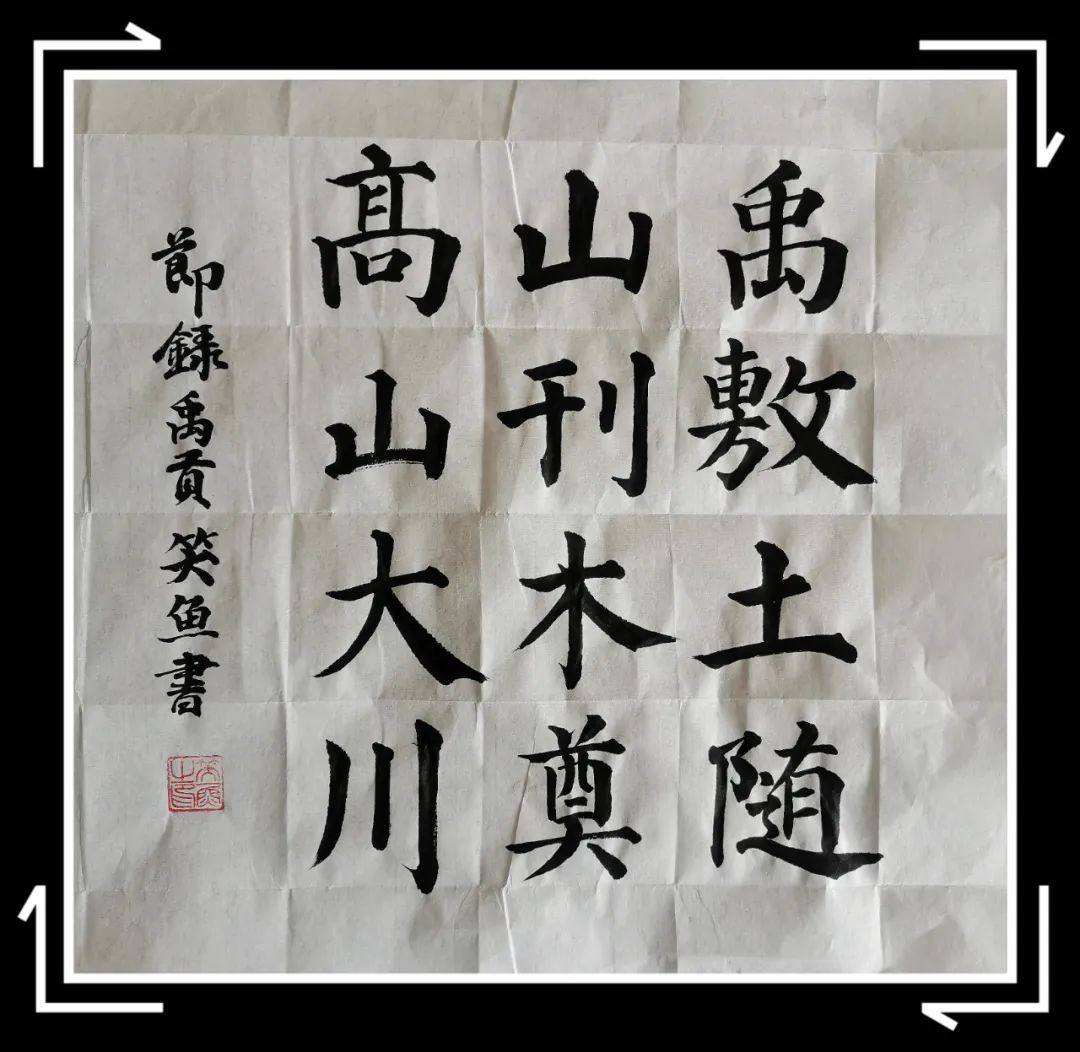 禹敷土随
山刊木奠
高山大川
節録禹贡笑魚書